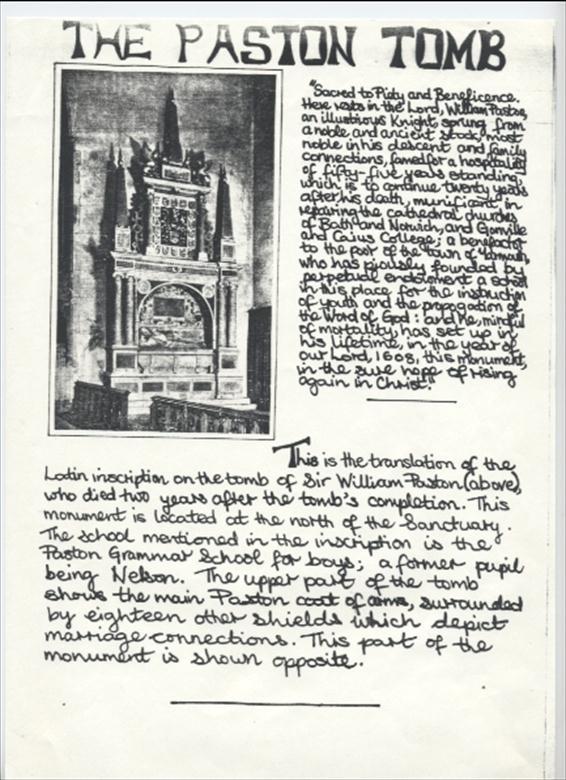 THE PASTON TOMB
"Sacred to Piety and Beneficence.
Here rests in the Lord, William Paston,
an illustrious Knight, sprung from
a noble and ancient stock, most
noble in his descent and family
connections, famed for a hospitality
of fifty-five years standing,
which is to continue twenty years
after his death, munificent in
repairing the cathedral churches
of Bath and Norwich, and Gonville
and Caius College; a benefactor
to the poor of the town of Yarmouth,
who has piously founded by
perpetual endowment a school
in this place for the instruction
of youth and the propagation of
the Word of God: and he, mindful
of mortality, has set up in
his lifetime, in the year of
our Lord, 1608, this monument,
in the sure hope of rising
again in Christ."
This is the translation of the
Latin inscription on the tomb of Sir William Paston (above),
who died two years after the tomb's completion. This
monument is located at the north of the Sanctuary.
The school mentioned in the inscription is the
Paston Grammar School for boys; a former pupil
being Nelson. The upper part of the tomb
shows the main Paston coat of arms, surrounded
by eighteen other shields which depict
marriage connections. This part of the
monument is shown opposite.